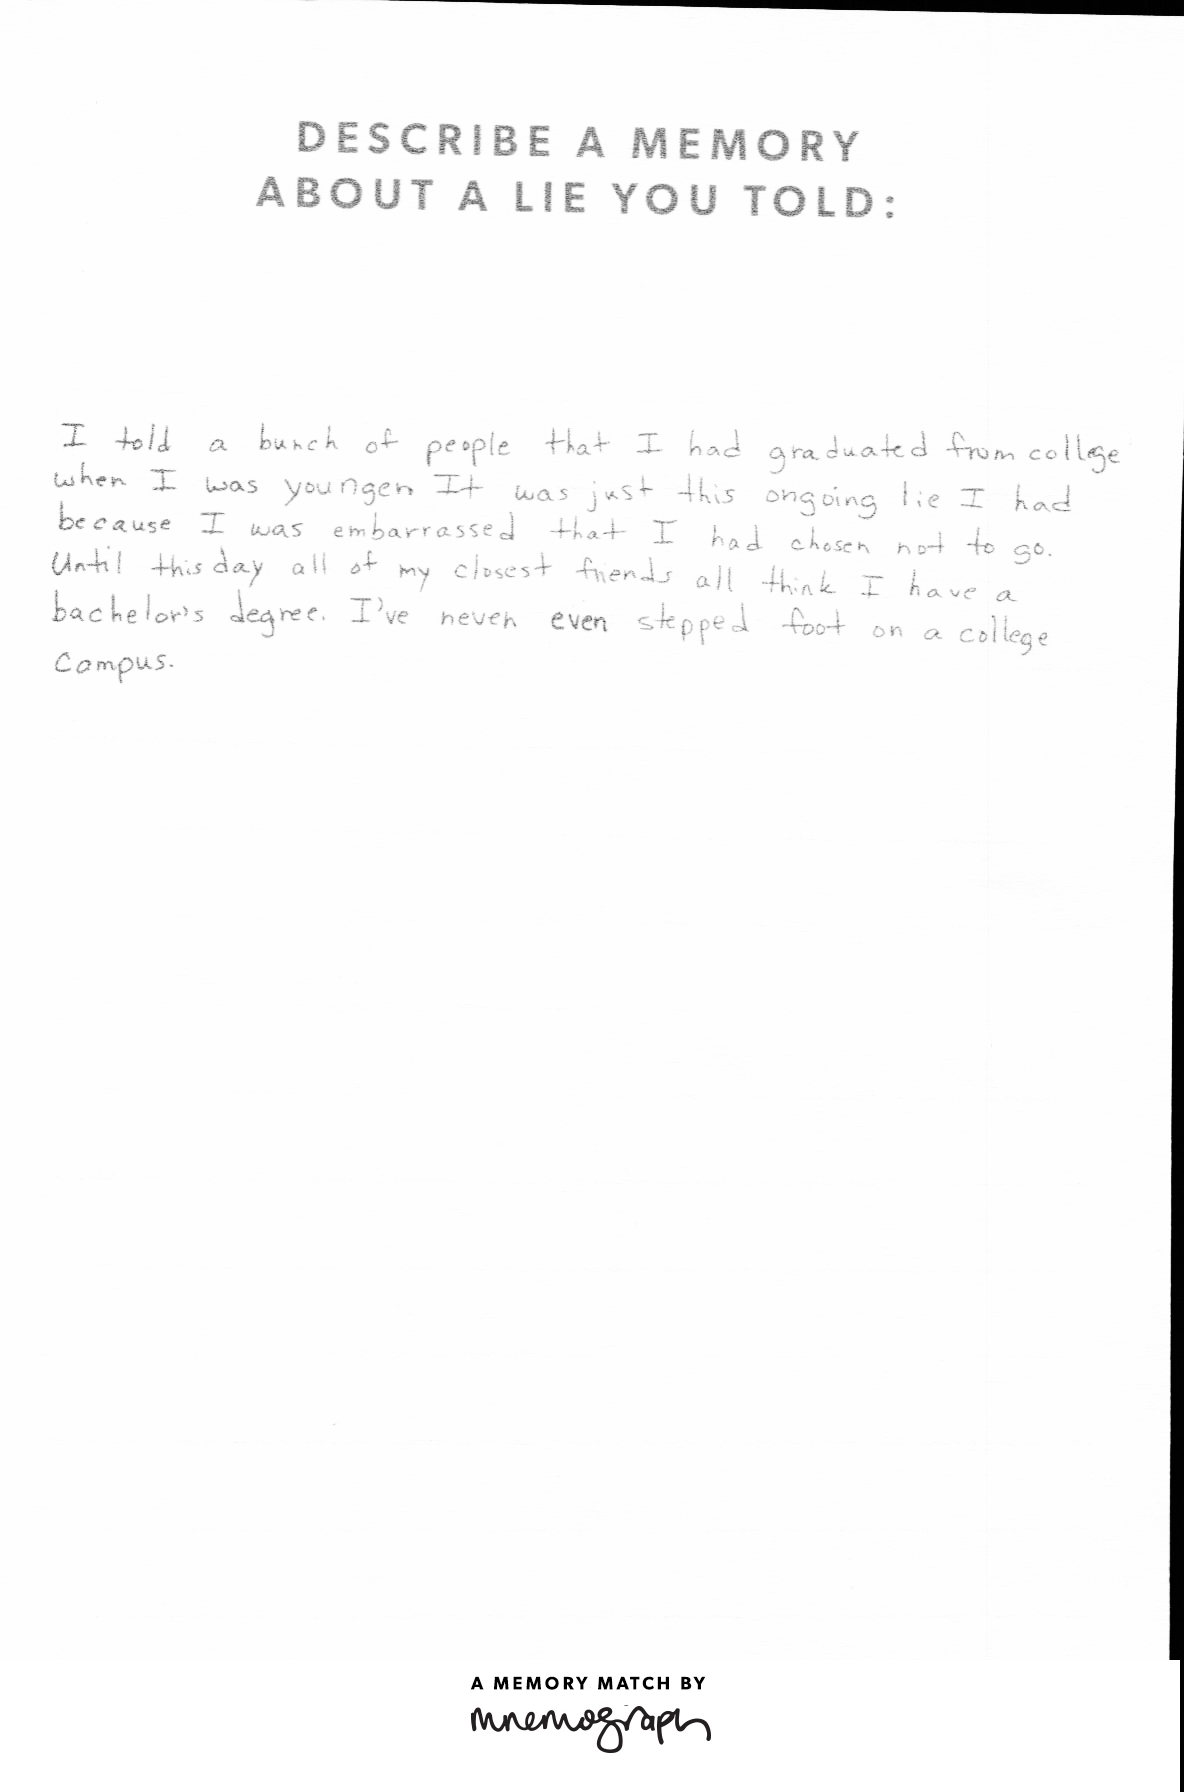 DESCRIBE A MEMORY
ABOUT A LIE YOU TOLD:
I told a bunch of people that I had graduated from college
when I was younger It was just this ongoing lie I had
because I was embarrassed that I had chosen not to go.
Until this day all of my closest friends all think I have a
bachelor's degree. I've never even stepped foot on a college
campus.
A MEMORY MATCH BY
mnemograph